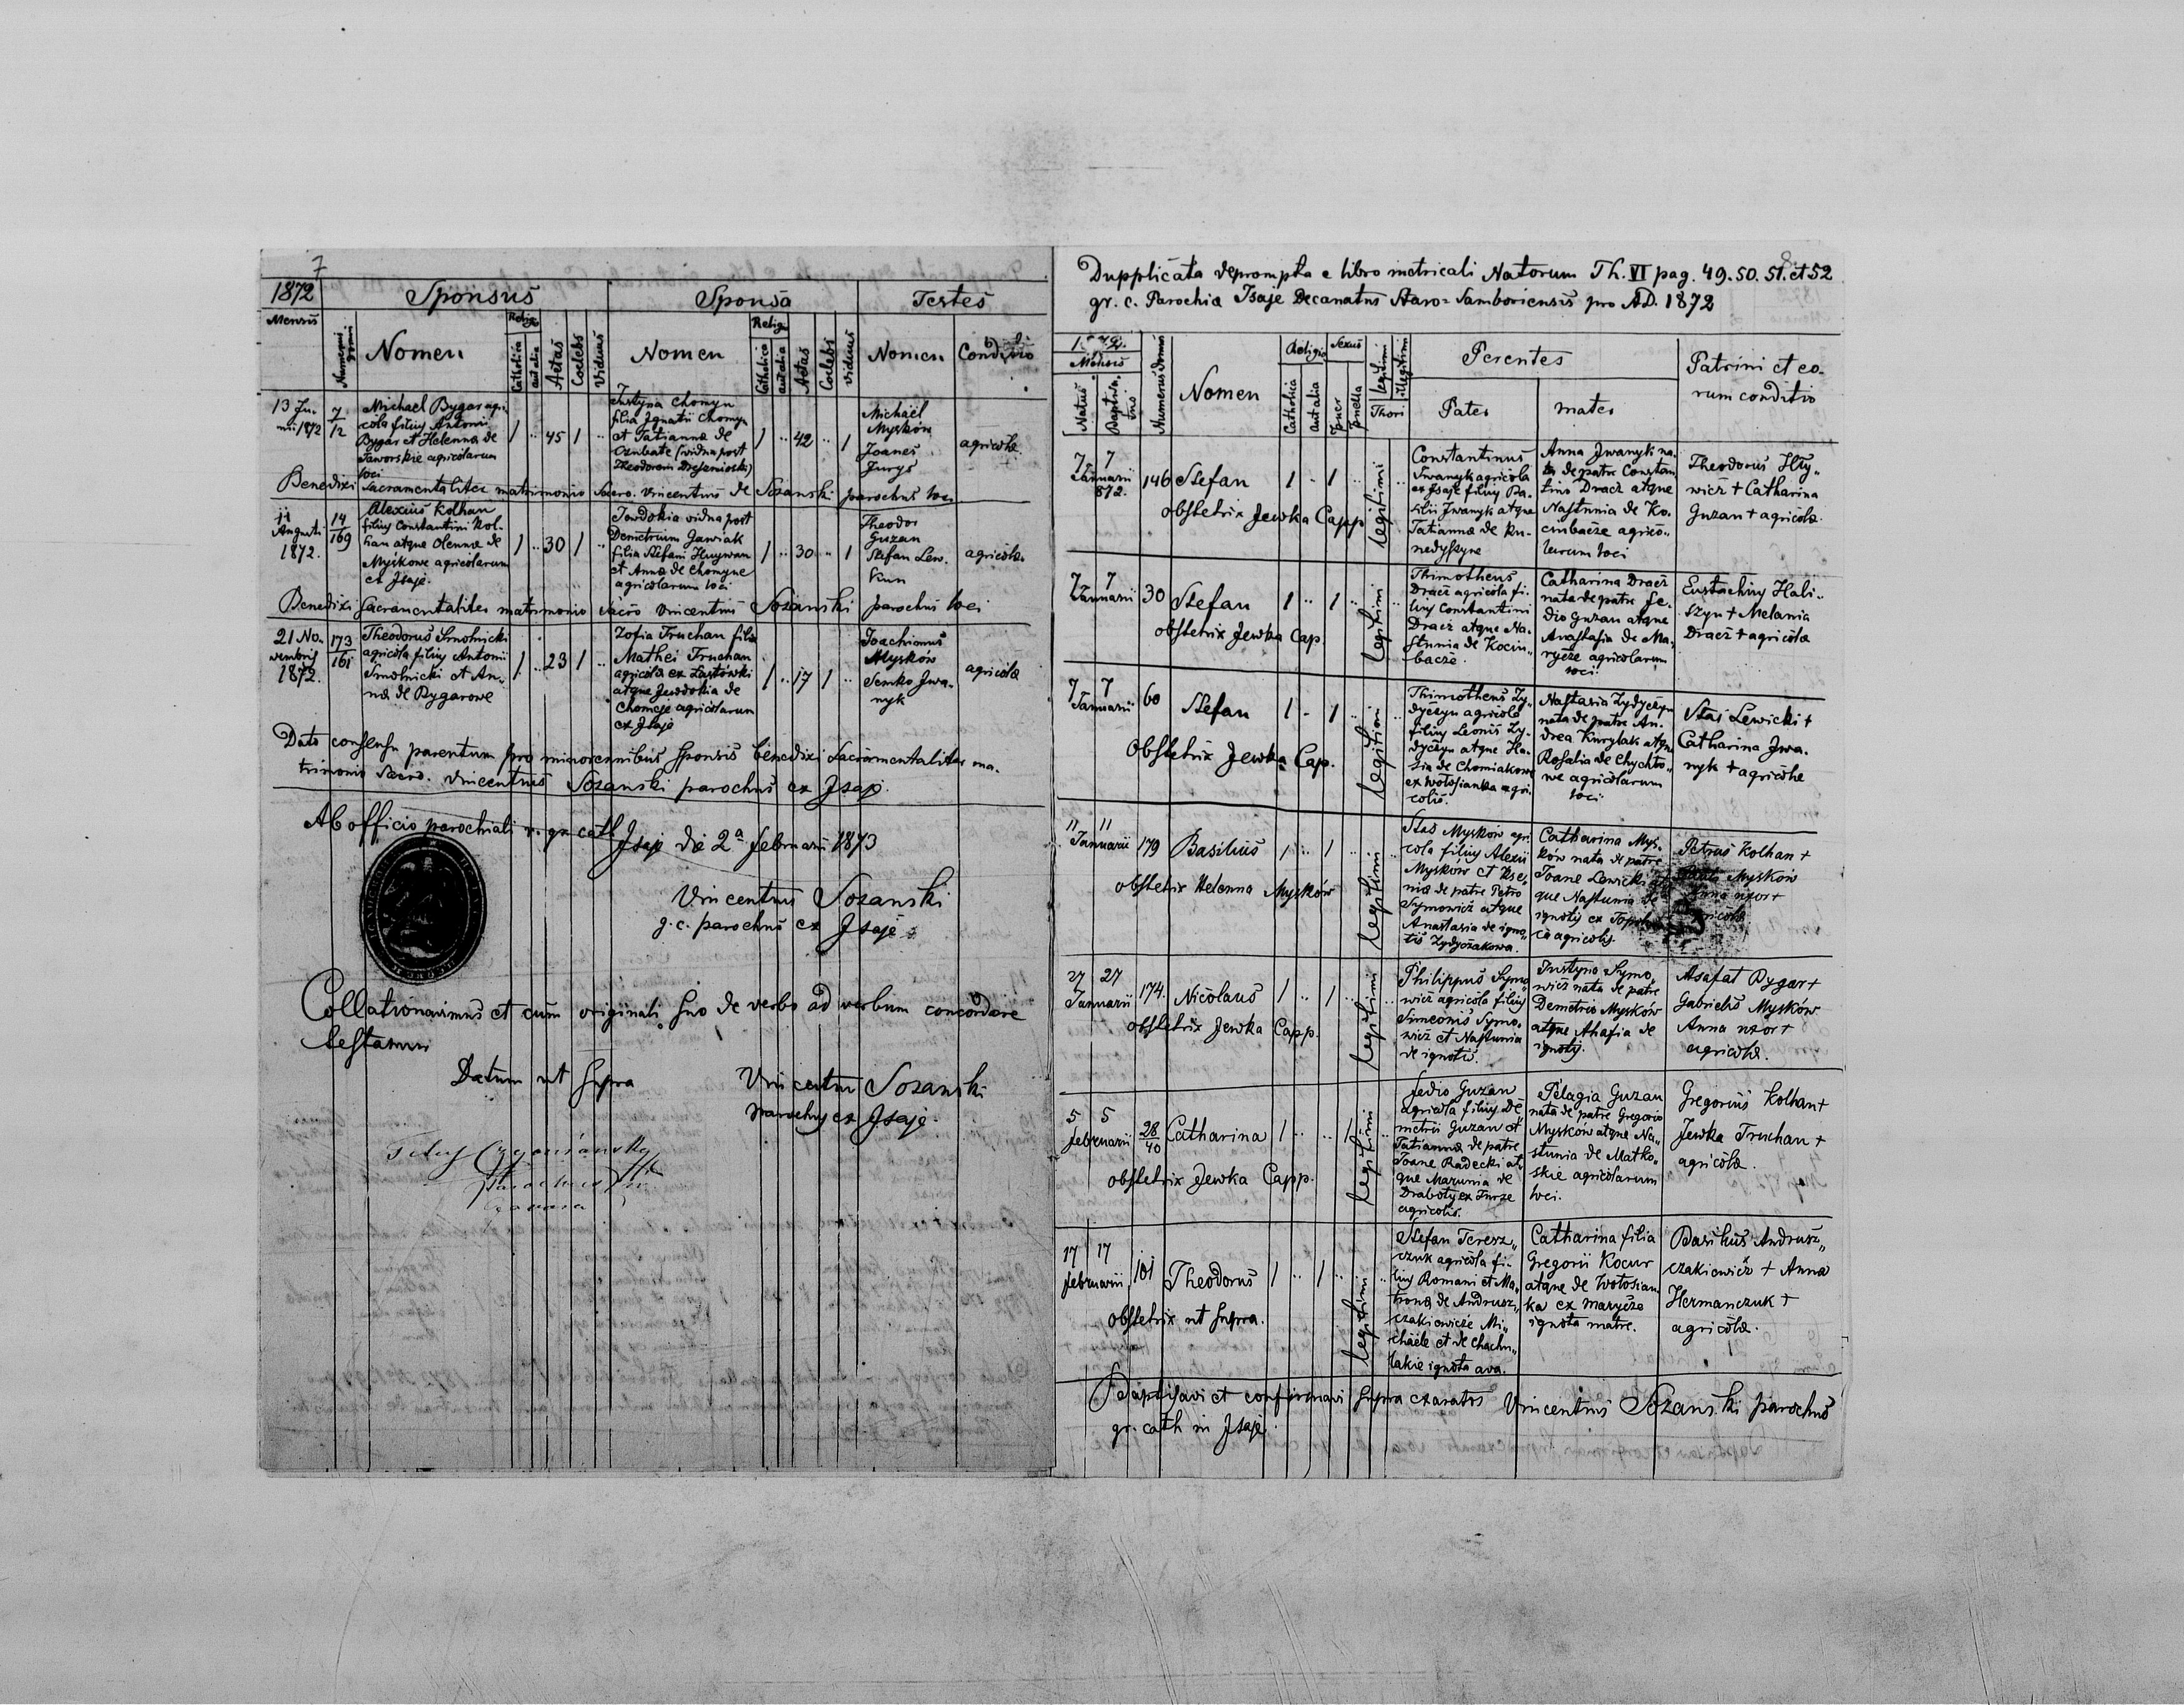 7
1872 Sponsus Sponsa Testes
Mensis Numerus domus Nomen Religio Catholica aut alia Aetas Coelebs Viduus Nomen Religio Catholica aut alia Aetas Coelebs Viduus Nomen Conditio
13 Ju-
nii 1872
7/12
Michael Bygar agri-
cola filius Antonii
Bygar et Helenna de
Jaworskie agricolarum
loci
1 .. 45 1 ..
Justyna Chomyn
filia Ignatii Chomyn
et Tatianna de
(vidua post
Theodorum
1 .. 42 .. 1
Michael
Mysków
Joanes
Jurys
agricolae
Benedixi Sacramentaliter matrimonio Sacro. Vincentius de Sozanski parochus loci
11
Augusti
1872.
14/169
Alexius Kolhan
filius Constantini Kol-
han atque Olenna de
Myskowe agricolarum
ex Jsaje.
1 .. 30 1 ..
Jewdokia vidua post
Demetrium Jawiak
filia Stefani Hnywan
et Anna de Chomyne
agricolarum loci
1 .. 30 .. 1
Theodor
Guzan
Stefan Lew-
kun
agricolae
Benedixi Sacramentaliter matrimonio Sacro Vincentius Sozanski parochus loci
21 No-
vembris
1872.
173/161
Theodorus Smolnicki
agricola filius Antonii
Smolnicki et An-
na de Bygarowe
1 .. 23 1 ..
Zofia Truchan filia
Mathei Truchan
agricola ex Łastówki
atque Jewdokia de
Chomeje agricolarum
ex Jsaje
1 .. 17 1 ..
Joachimus
Mysków
Semko Jwa-
nyk
agricolae
Dato consensu parentum pro minorennibus sponsis benedixi Sacramentaliter ma-
trimonio Sacro. Vincentius Sozanski parochus ex Jsaje.
Ab officio parochiali r. gr. cath
Jsaje die 2a februarii 1873
Vincentius Sozanski
g. c. parochus ex Jsaje
Collationavimus et cum originali suo de verbo ad verbum concordare
testamur
Datum ut supra Vincentius Sozanski
parochus ex Jsaje.
Dupplicata deprompta e libro metricali Natorum Th. VI pag. 49. 50. 51. et 52
gr. c. Parochia Jsaje Decanatus Staro-Samboriensis pro A.D. 1872
1872. Mensis Natus Baptisatus Numerus domus Nomen Religio Catholica aut alia Sexus Puer Puella Legitimi Illegitimi Thori Perentes Pater mater Patrini et eo-
rum conditio
7 7
Januarii
872.
146 Stefan 1 .. 1 ..
obstetrix Jewka Capp
legitimi
Constantinus
Jwanyk agricola
ex Jsaje filius Ba-
silii Jwanyk atque
Tatianna de Ku-
nedyszyne
Anna Jwanyk na-
ta de patre Constan
tino Dracz atque
Nastunia de Ko-
cinbacze agrico-
larum loci
Theodorus Hry-
wicz + Catharina
Guzan + agricolae.
7 7
Januarii
30 Stefan 1 .. 1 ..
obstetrix Jewka Cap.
legitimi
Thimotheus
Dracz agricola fi-
lius Constantini
Dracz atque Na-
stunia de Kocin-
bacze.
Catharina Dracz
nata de patre Fe-
dio Guzan atque
Anastasia de Ma-
rycze agricolarum
loci
Eustachius Hali-
szyn + Melania
Dracz + agricolae
7 7
Januarii
60 Stefan 1 .. 1 ..
Obstetrix Jewka Cap.
legitimi
Thimotheus Zy-
dyczyn agricola
filius Leonis Zy-
dyczyn atque Ha-
sia de Chomiakowe
ex Wołosianka agri-
colis.
Nastasia Zydyczyn
nata de patre An-
drea Kurylak atque
Rosalia de Chychło-
we agricolarum
loci
Stas Lewicki +
Catharina Jwa-
nyk + agricolae
11 11
Januarii
179 Basilius 1 .. 1 ..
obstetrix Helenna Mysków
legitimi
Stas Mysków agri-
cola filius Alexii
Mysków et Kse-
nia de patre Petro
Symowicz atque
Anastasia de igno-
tis Zydyczakowa.
Catharina Mys-
ków nata de patre
Joane Lewicki at
que Nastunia de
ignotis ex
agricolis.
Petrus Kolhan +
Mysków
Anna uxor +
agricolae
27 27
Januarii
174. Nicolaus 1 .. 1 ..
obstetrix Jewka Capp.
legitimi
Philippus Symo-
wicz agricola filius
Simeonis Symo-
wicz et Nastunia
de ignotis.
Justyna Symo-
wicz nata de patre
Demetrio Mysków
atque Ahafia de
ignotis.
Asafat Bygar +
Gabrielis Mysków
Anna uxor +
agricolae.
5 5
februarii
28/40 Catharina 1 .. .. 1
obstetrix Jewka Capp.
legitimi
Fedio Guzan
agricola filius De-
metrii Guzan et
Tatianna de patre
Joane Radecki at-
que Marunia de
Draboty ex Turze
agricolis.
Pelagia Guzan
nata de patre Gregorio
Mysków atque Na-
stunia de Matko-
skie agricolarum
loci.
Gregorius Kolhan +
Jewka Truchan +
agricolae.
17 17
februarii
101 Theodorus 1 .. 1 ..
obstetrix ut supra.
legitimi
Stefan Teresz-
czuk agricola fi-
lius Romani et Ma-
trona de Andrusz-
czakiewicze Mi-
chaele et de Chachu-
lakie ignota ava.
Catharina filia
Gregorii Kocur
atque de Wołosian
ka ex Marycze
ignota matre.
Basilius Andrusz-
czakiewicz + Anna
Hermanczuk +
agricolae.
Baptisavi et confirmavi supra exaratos Vincentius Sozanski parochus
gr. cath in Jsaje.